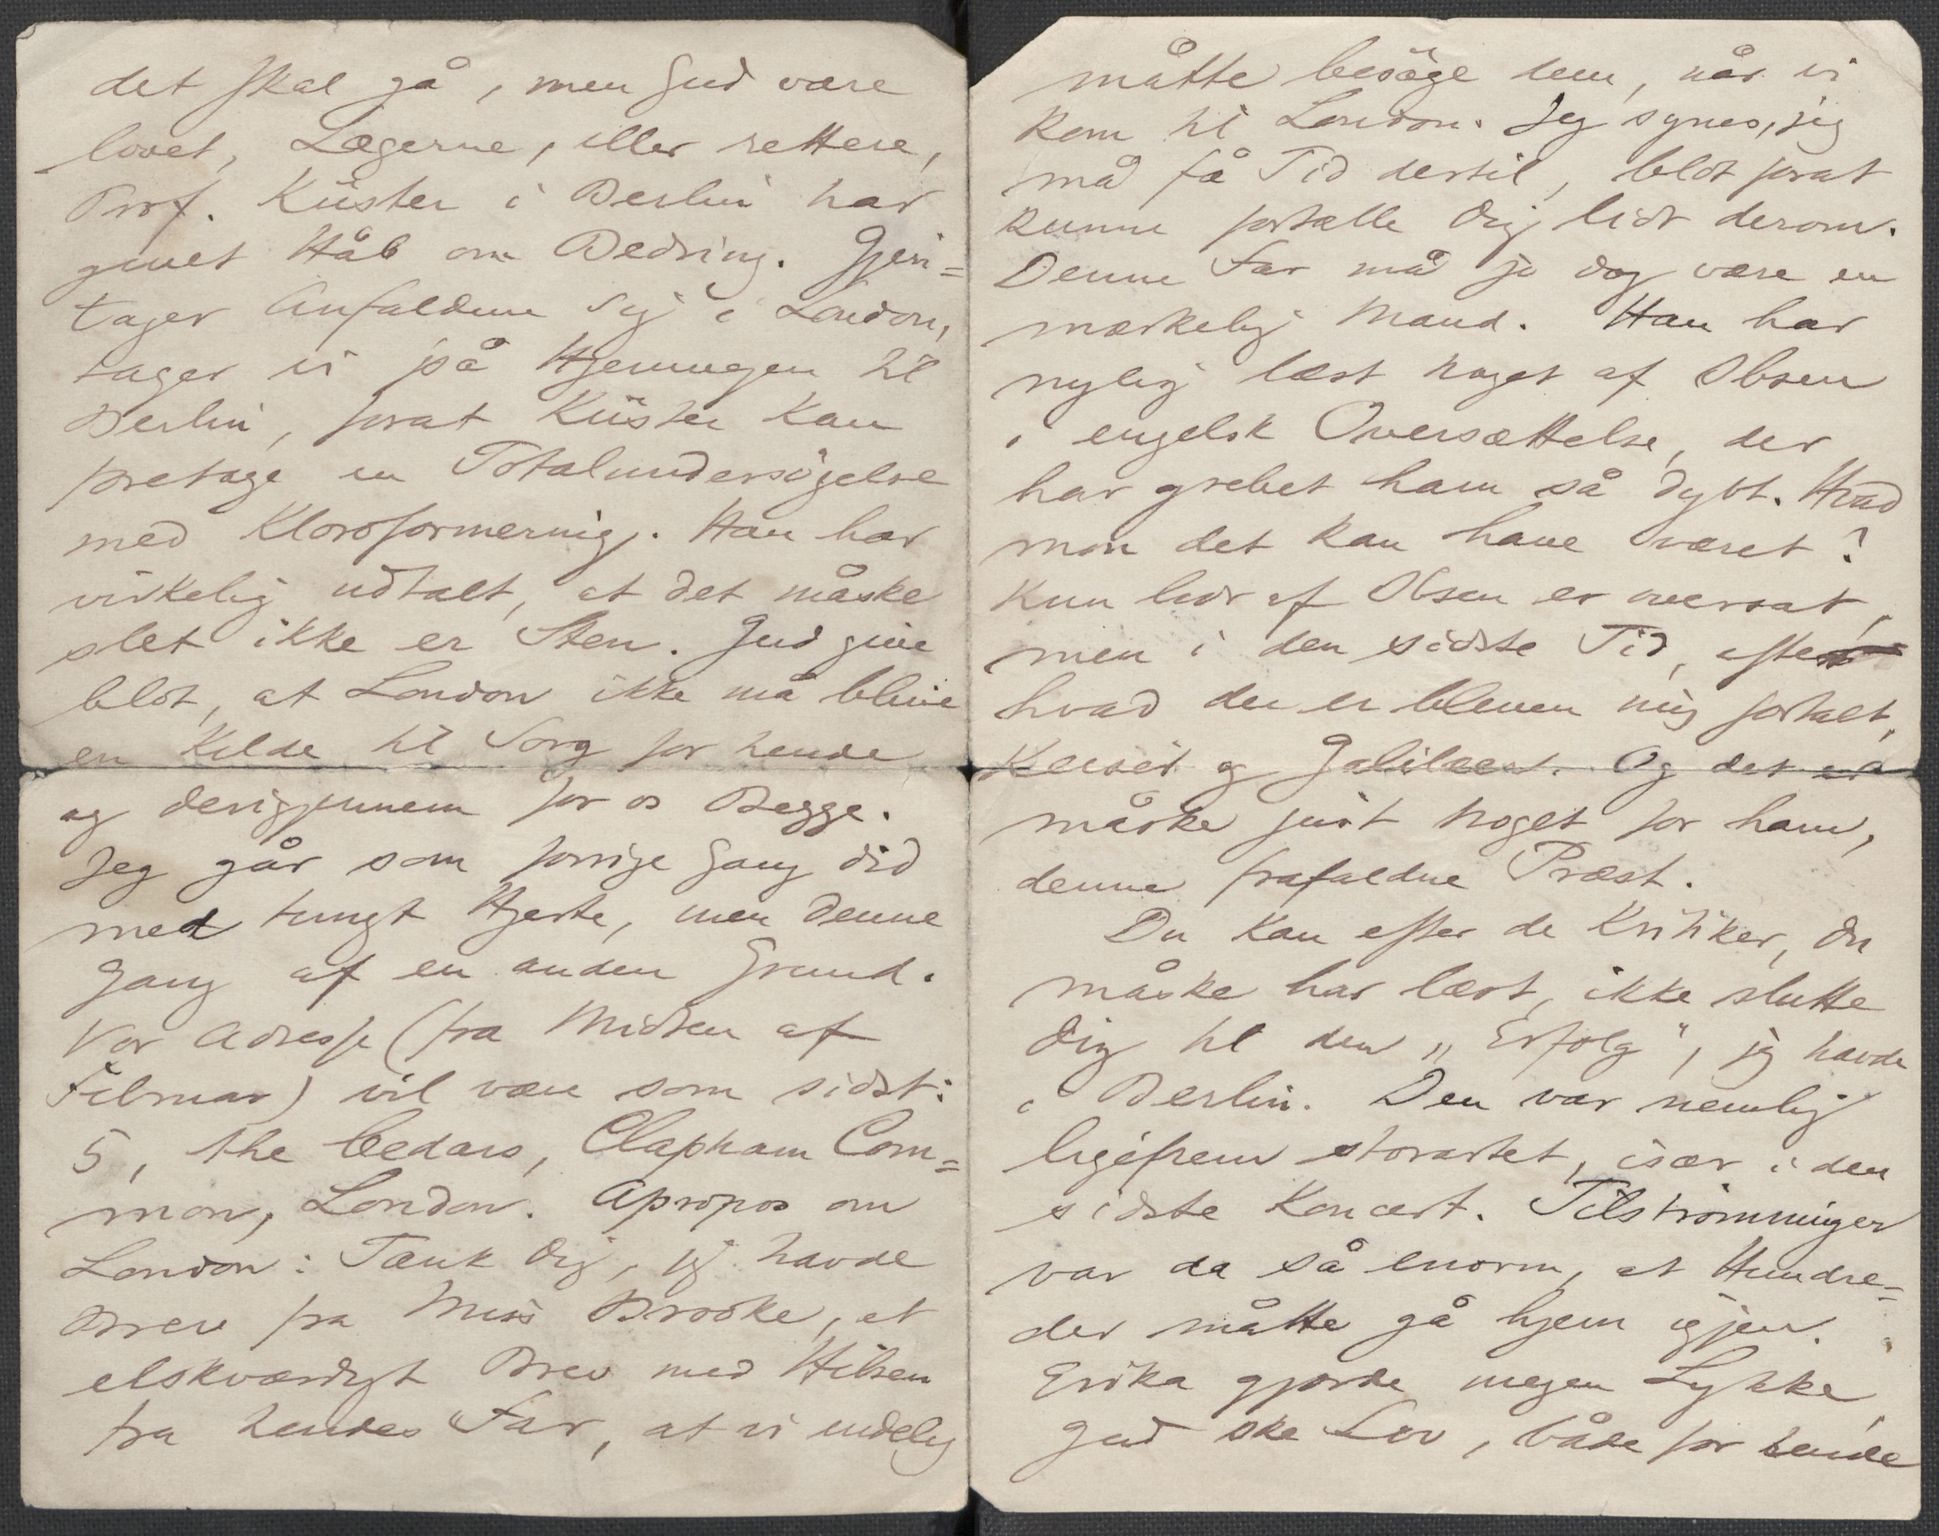 det skal gå, men Gud være
lovet, Lægerne, eller rettere,
Prof. Küster i Berlin har
givet Håb om Bedring. Gjen=
tager Anfaldene sig i London,
tager vi på Hjemvejen til
Berlin, forat Küster kan
foretage en Totalundersögelse
med Kloroformering. Han har
virkelig udtalt, at det måske
slet ikke er Sten. Gud give
blot, at London ikke må blive
en Kilde til Sorg for hende
og derigjennem for os Begge.
Jeg går som forrige Gang did
med tungt Hjerte, men denne
Gang af en anden Grund.
Vor Adresse (fra Midten af
Februar) vil være som sidst:
5, the Cedars, Clapham Com=
mon, London. Apropos om
London: Tænk Dig, jeg havde
Brev fra Miss Brooke, et
elskværdigt Brev med Hilsen
fra hendes Far, at vi endelig
måtte besöge dem, når vi
kom til London. Jeg synes, jeg
må få Tid dertil, blot forat
kunne fortælle Dig lidt derom.
Denne Far må jo dog være en
mærkelig Mand. Han har
nylig læst noget af Ibsen
i engelsk Oversættelse, der
har grebet ham så dybt. Hvad
mon det kan have været?
Kun lidt af Ibsen er oversat,
men i den sidste Tid, efter
hvad der er bleven mig fortalt,
Keiser og Galilæer. Og det er
måske just noget for ham,
denne frafaldne Præst.
Du kan efter de Kritiker, Du
måske har læst, ikke slutte
Dig til den „Erfolg“, jeg havde
i Berlin. Den var nemlig
ligefrem storartet, især i den
sidste Koncert. Tilströmningen
var da så enorm, at Hundre=
der måtte gå hjem igjen.
Erika gjorde megen Lykke,
Gud ske Lov, både for hende